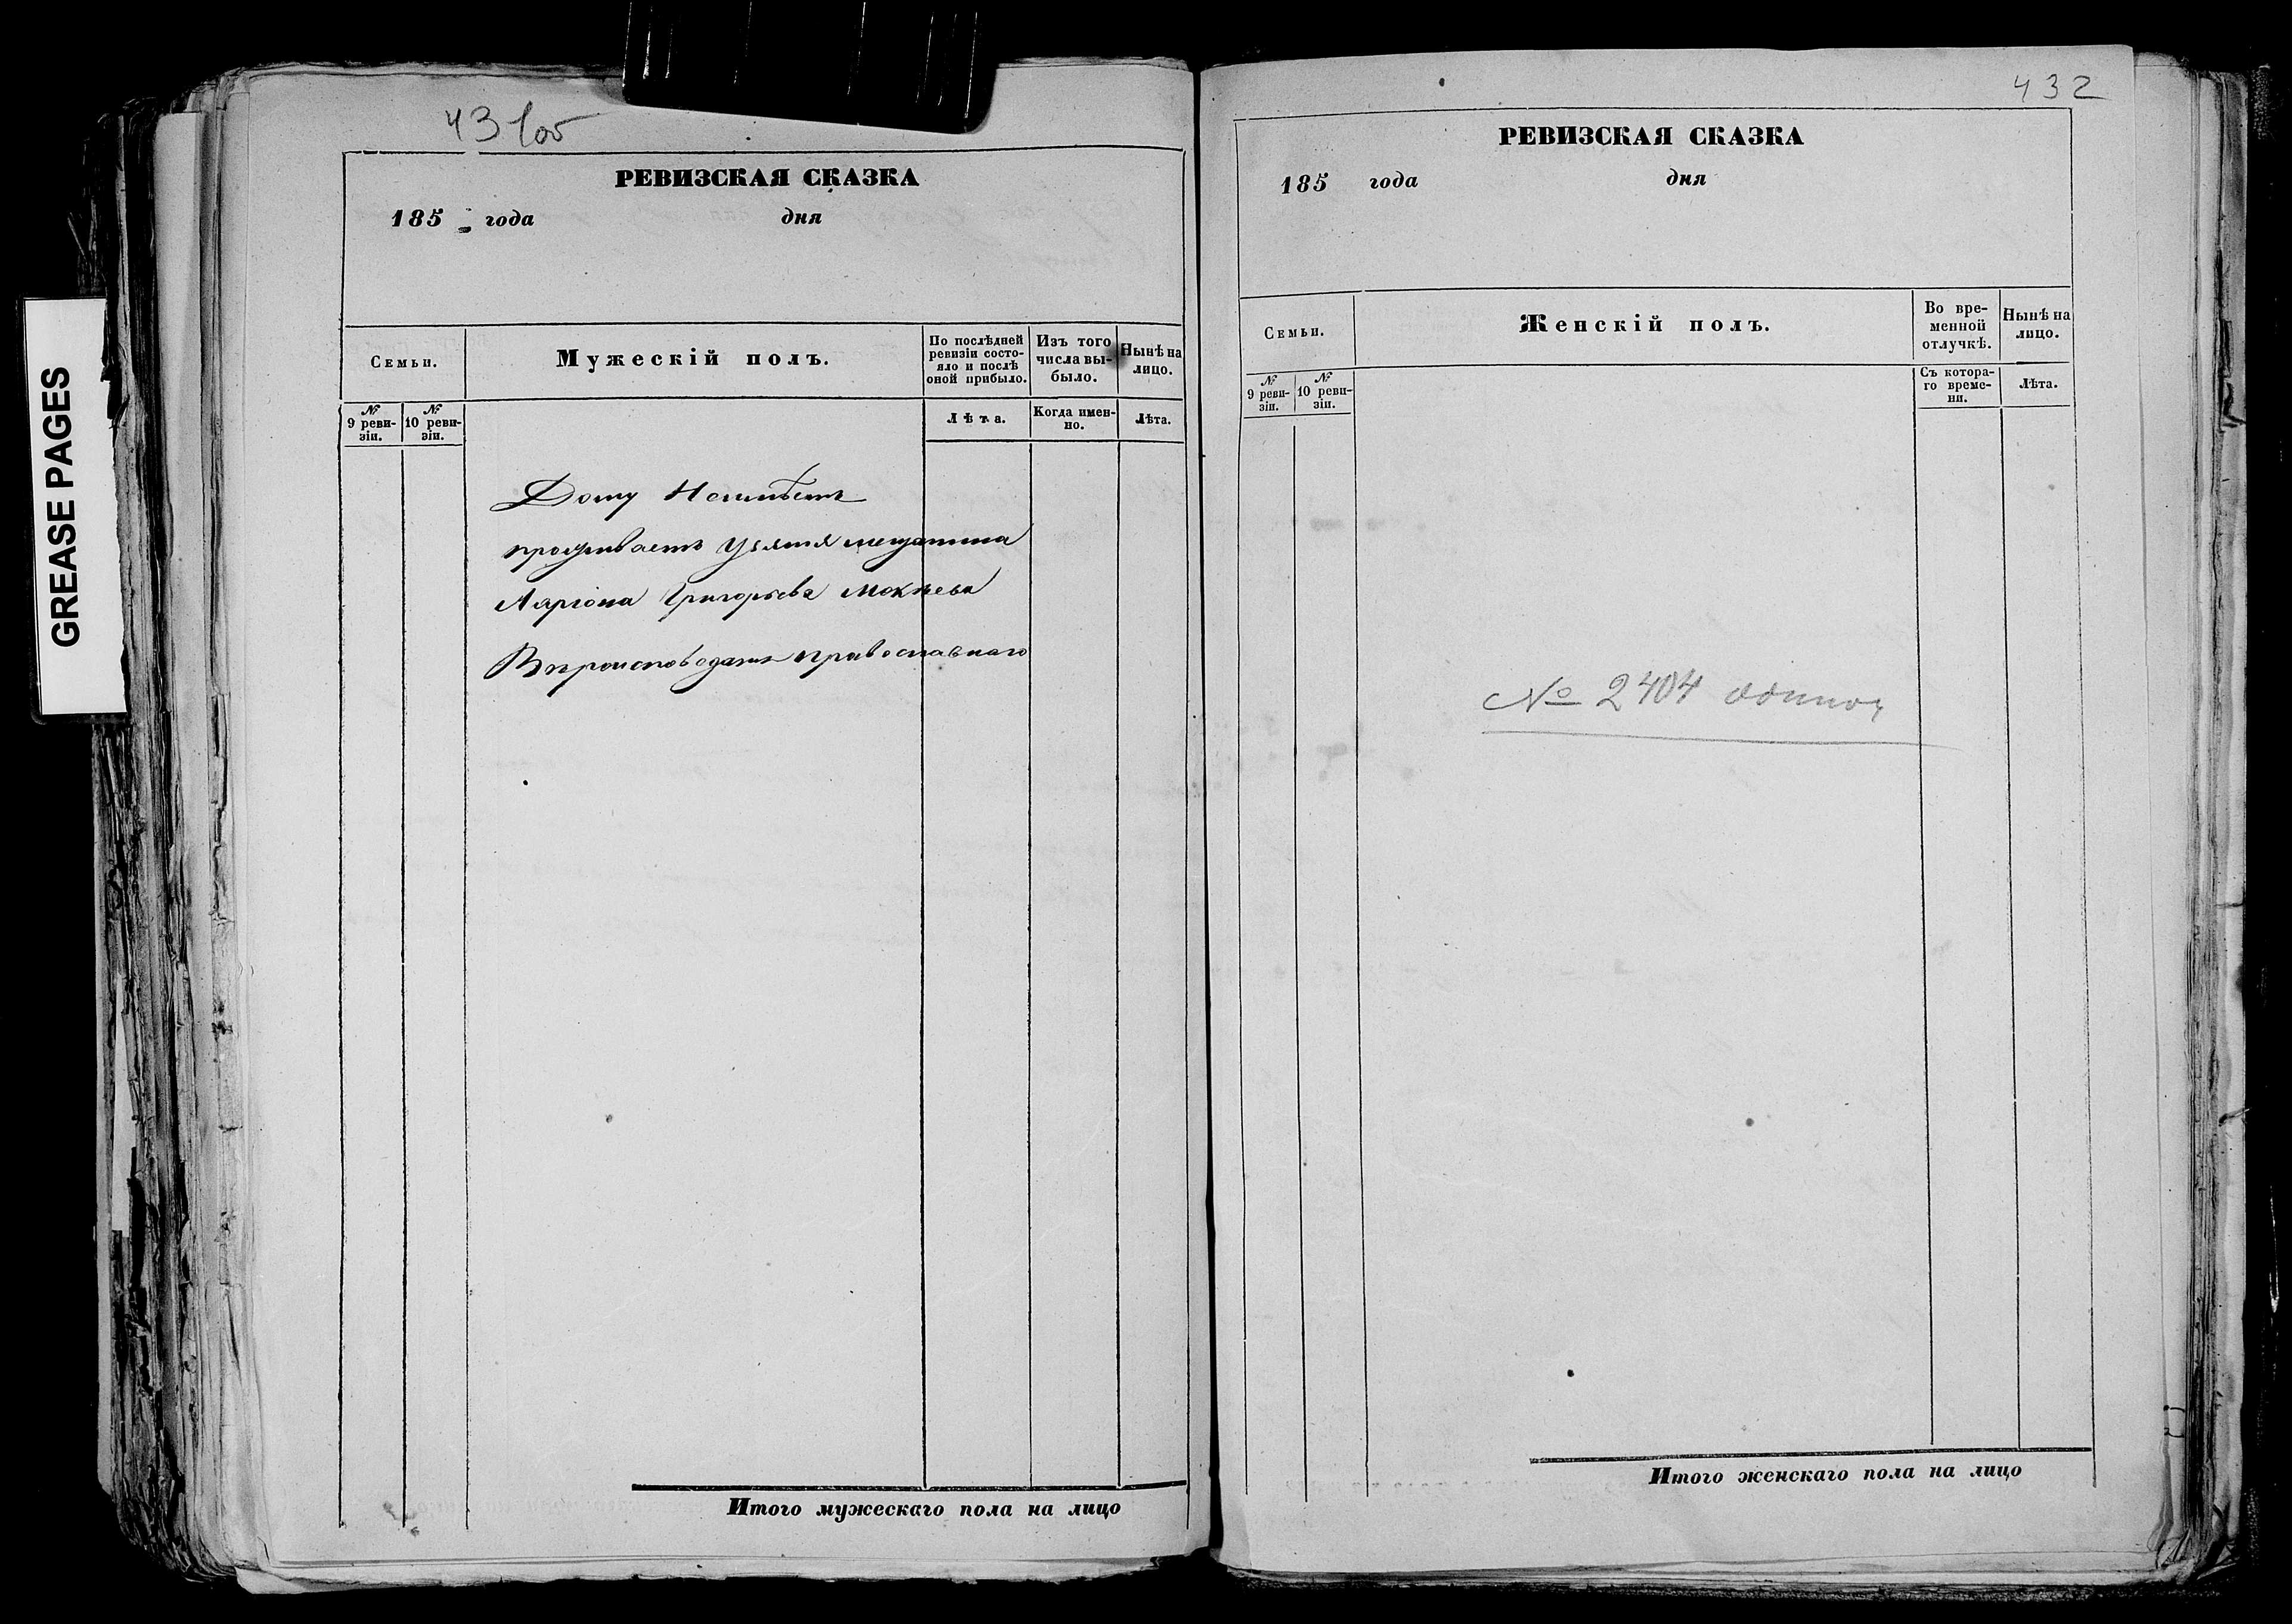 431об
РЕВИЗСКАЯ СКАЗКА
185 года дня
Семьи.
Мужескій полъ.
По послѣдней
ревизіи состо-
яло и послѣ
оной прибыло.
Изъ того
числа вы-
было.
Нынѣ на
лицо.
№
9 реви-
зіи.
№
10 реви-
зіи.
Лѣта.
Когда имен-
но.
Лѣта.
Дому Неимѣетъ
проживаетъ
Ларіона Григорьева Мокѣева
православнаго
Итого мужескаго пола на лицо
432
РЕВИЗСКАЯ СКАЗКА
185 года дня
Семьи.
Женскій полъ.
Во вре-
менной
отлучкѣ.
Нынѣ на
лицо.
№
9 реви-
зіи.
№
10 реви-
зіи.
Съ котора-
го време-
ни.
Лѣта.
№ 2404
Итого женскаго пола на лицо
GREASE PAGES